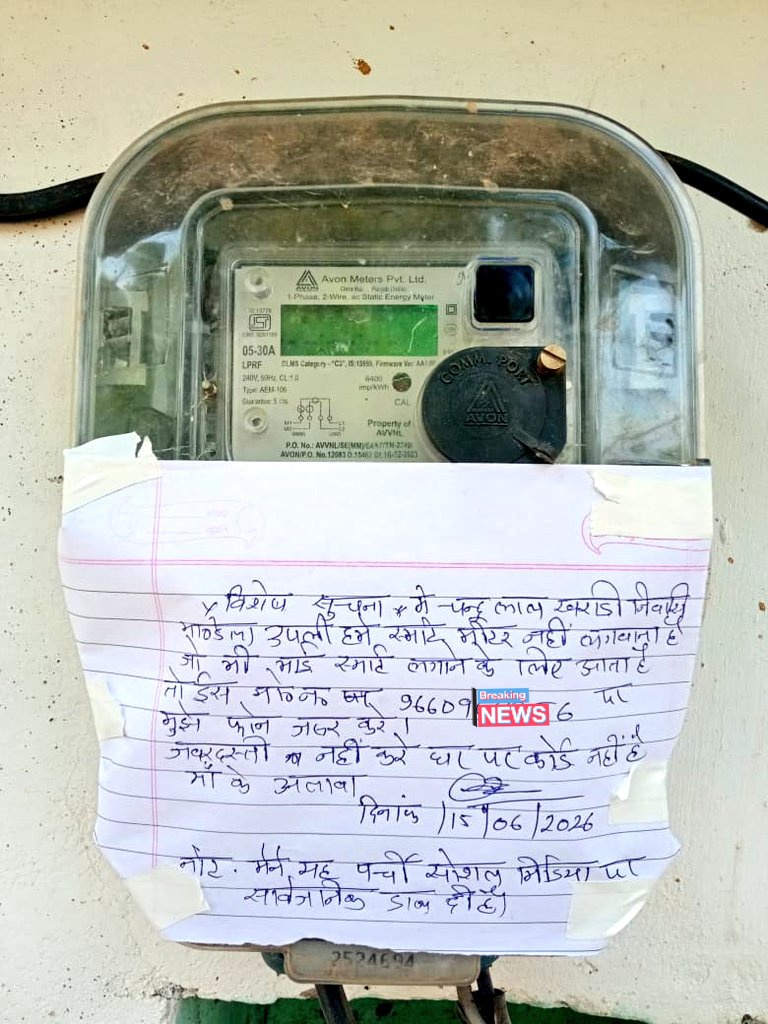 AVON
Avon Meters Pvt. Ltd.
1-Phase, 2-Wire, ac Static Energy Meter
05-30A
LPRF
DLMS Category - "C2", IS:15959, Firmware Ver:
240V, 50Hz, CL:1.0
6400
imp/kWh
Type: AEM-106
CAL
COMM. PORT
AVON
Property of
AVVNL
AVON/P.O. No.12083 D.15402 Dt.16/02/2023
x विशेष सुचना x मे चन्दू लाल खराडी निवासि
उपली हमे स्मार्ट मीटर नहीं लगवाना है
जो भी भाई स्मार्ट लगाने के लिए आता है
तो ईस मो० न० 96609 6 पर
Breaking
NEWS
मुझे फोन जरूर करे।
जबरदस्ती नहीं करे घर पर कोई नहीं है
माँ के अलावा
दिनांक 15/06/2026
नोट. मैने यह पर्ची सोशल मिडिया पर
सार्वजनिक डाल दी है।
2524694